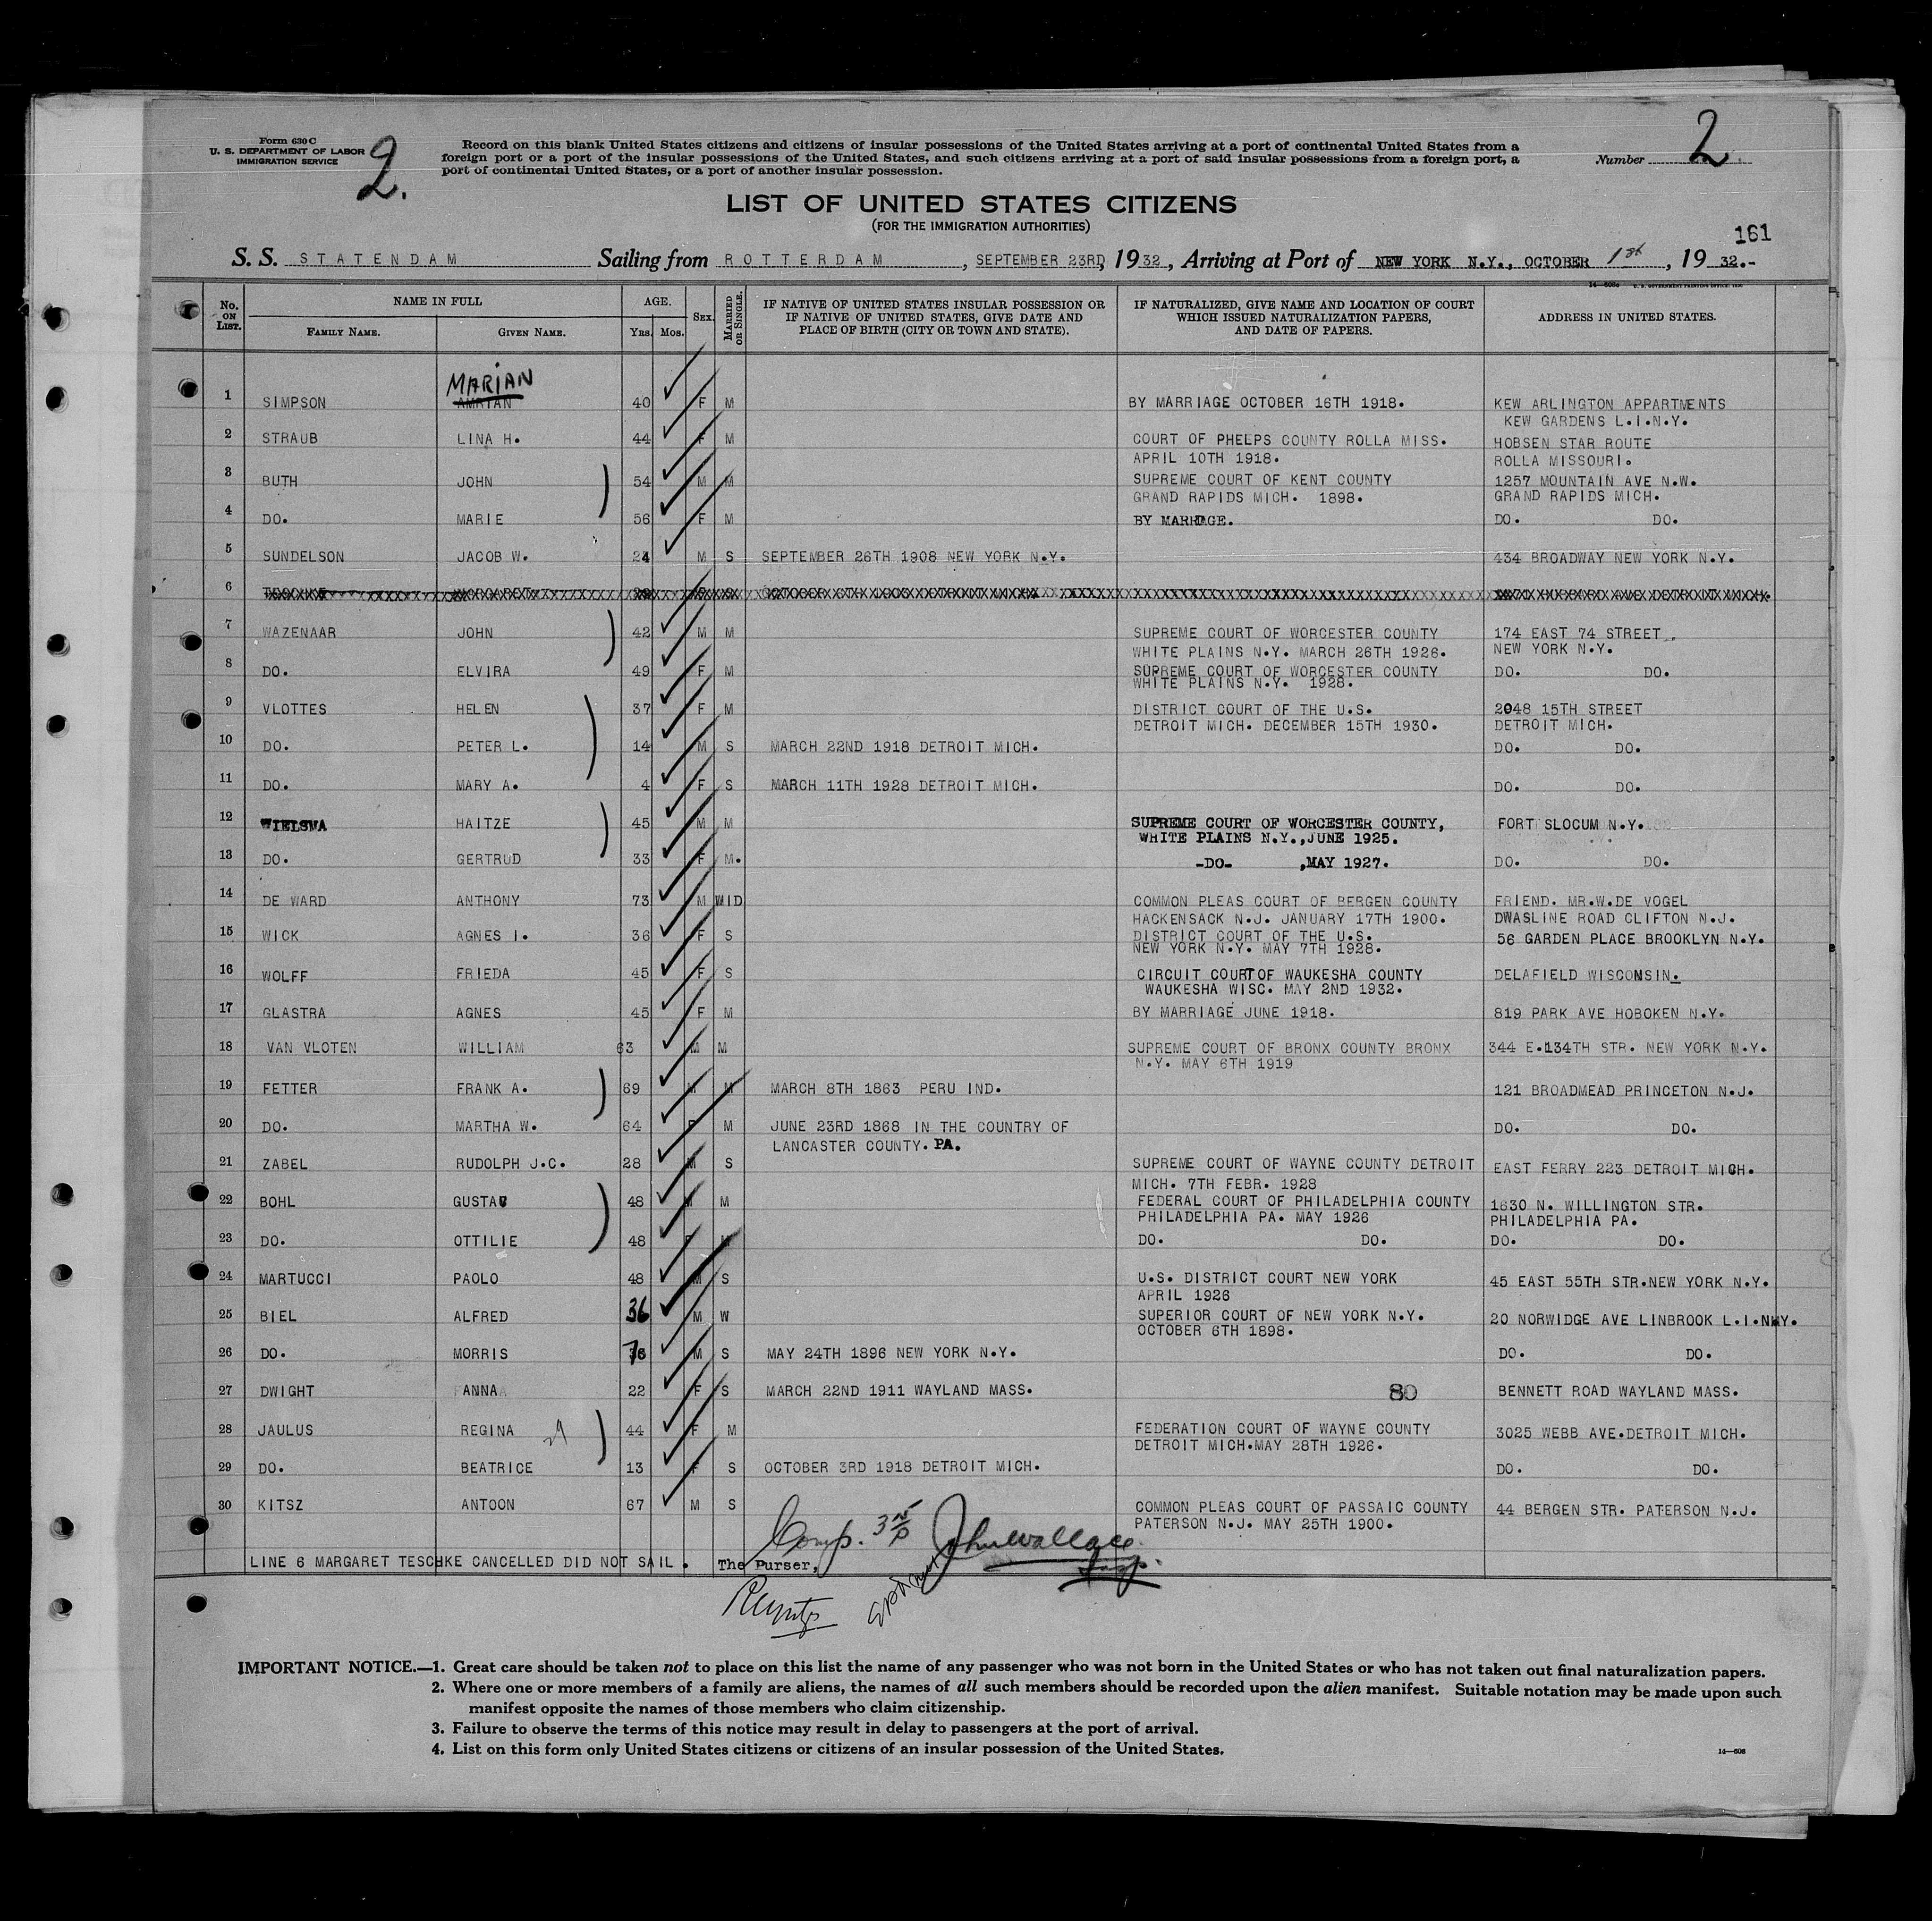 Form 630 C
U. S. DEPARTMENT OF LABOR
IMMIGRATION SERVICE
2.
Record on this blank United States citizens and citizens of insular possessions of the United States arriving at a port of continental United States from a
foreign port or a port of the insular possessions of the United States, and such citizens arriving at a port of said insular possessions from a foreign port, a
port of continental United States, or a port of another insular possession.
Number 2
LIST OF UNITED STATES CITIZENS
(FOR THE IMMIGRATION AUTHORITIES)
161
S. S. STATENDAM Sailing from ROTTERDAM, SEPTEMBER 23RD, 1932, Arriving at Port of NEW YORK N.Y., OCTOBER 1st, 1932.-
No. ON LIST. NAME IN FULL AGE. SEX. MARRIED OR SINGLE. IF NATIVE OF UNITED STATES INSULAR POSSESSION OR IF NATIVE OF UNITED STATES, GIVE DATE AND PLACE OF BIRTH (CITY OR TOWN AND STATE). IF NATURALIZED, GIVE NAME AND LOCATION OF COURT WHICH ISSUED NATURALIZATION PAPERS, AND DATE OF PAPERS. ADDRESS IN UNITED STATES.
FAMILY NAME. GIVEN NAME. YRS. MOS.
MARIAN
1 SIMPSON AMRIAN 40 F M BY MARRIAGE OCTOBER 16TH 1918. KEW ARLINGTON APPARTMENTS
KEW GARDENS L.I.N.Y.
2 STRAUB LINA H. 44 F M COURT OF PHELPS COUNTY ROLLA MISS. HOBSEN STAR ROUTE
APRIL 10TH 1918. ROLLA MISSOURI.
3 BUTH JOHN 54 M M SUPREME COURT OF KENT COUNTY 1257 MOUNTAIN AVE N.W.
GRAND RAPIDS MICH. 1898. GRAND RAPIDS MICH.
4 DO. MARIE 56 F M BY MARRIAGE. DO. DO.
5 SUNDELSON JACOB W. 24 M S SEPTEMBER 26TH 1908 NEW YORK N.Y. 434 BROADWAY NEW YORK N.Y.
6
7 WAZENAAR JOHN 42 M M SUPREME COURT OF WORCESTER COUNTY 174 EAST 74 STREET
WHITE PLAINS N.Y. MARCH 26TH 1926. NEW YORK N.Y.
8 DO. ELVIRA 49 F M SUPREME COURT OF WORCESTER COUNTY DO. DO.
WHITE PLAINS N.Y. 1928.
9 VLOTTES HELEN 37 F M DISTRICT COURT OF THE U.S. 2048 15TH STREET
DETROIT MICH. DECEMBER 15TH 1930. DETROIT MICH.
10 DO. PETER L. 14 M S MARCH 22ND 1918 DETROIT MICH. DO. DO.
11 DO. MARY A. 4 F S MARCH 11TH 1928 DETROIT MICH. DO. DO.
12 WIELSMA HAITZE 45 M M SUPREME COURT OF WORCESTER COUNTY, FORT SLOCUM N.Y.
WHITE PLAINS N.Y.,JUNE 1925.
13 DO. GERTRUD 33 F M. -DO- ,MAY 1927. DO. DO.
14 DE WARD ANTHONY 73 M WID COMMON PLEAS COURT OF BERGEN COUNTY FRIEND. MR.W.DE VOGEL
HACKENSACK N.J. JANUARY 17TH 1900. DWASLINE ROAD CLIFTON N.J.
15 WICK AGNES I. 36 F S DISTRICT COURT OF THE U.S. 56 GARDEN PLACE BROOKLYN N.Y.
NEW YORK N.Y. MAY 7TH 1928.
16 WOLFF FRIEDA 45 F S CIRCUIT COURT OF WAUKESHA COUNTY DELAFIELD WISCONSIN.
WAUKESHA WISC. MAY 2ND 1932.
17 GLASTRA AGNES 45 F M BY MARRIAGE JUNE 1918. 819 PARK AVE HOBOKEN N.Y.
18 VAN VLOTEN WILLIAM 63 M M SUPREME COURT OF BRONX COUNTY BRONX 344 E.134TH STR. NEW YORK N.Y.
N.Y. MAY 6TH 1919
19 FETTER FRANK A. 69 M M MARCH 8TH 1863 PERU IND. 121 BROADMEAD PRINCETON N.J.
20 DO. MARTHA W. 64 F M JUNE 23RD 1868 IN THE COUNTRY OF DO. DO.
LANCASTER COUNTY. PA.
21 ZABEL RUDOLPH J.C. 28 M S SUPREME COURT OF WAYNE COUNTY DETROIT EAST FERRY 223 DETROIT MICH.
MICH. 7TH FEBR. 1928
22 BOHL GUSTAV 48 M M FEDERAL COURT OF PHILADELPHIA COUNTY 1630 N. WILLINGTON STR.
PHILADELPHIA PA. MAY 1926 PHILADELPHIA PA.
23 DO. OTTILIE 48 F M DO. DO. DO. DO.
24 MARTUCCI PAOLO 48 M S U.S. DISTRICT COURT NEW YORK 45 EAST 55TH STR.NEW YORK N.Y.
APRIL 1926
25 BIEL ALFRED 36 M W SUPERIOR COURT OF NEW YORK N.Y. 20 NORWIDGE AVE LINBROOK L.I.N.Y.
OCTOBER 6TH 1898.
26 DO. MORRIS M S MAY 24TH 1896 NEW YORK N.Y. DO. DO.
27 DWIGHT ANNA 22 F S MARCH 22ND 1911 WAYLAND MASS. 80 BENNETT ROAD WAYLAND MASS.
28 JAULUS REGINA 29 44 F M FEDERATION COURT OF WAYNE COUNTY 3025 WEBB AVE.DETROIT MICH.
DETROIT MICH.MAY 28TH 1926.
29 DO. BEATRICE 13 F S OCTOBER 3RD 1918 DETROIT MICH. DO. DO.
30 KITSZ ANTOON 67 M S COMMON PLEAS COURT OF PASSAIC COUNTY 44 BERGEN STR. PATERSON N.J.
PATERSON N.J. MAY 25TH 1900.
Comp. 3rd John Wallace
Insp.
LINE 6 MARGARET TESCHKE CANCELLED DID NOT SAIL. The Purser,
IMPORTANT NOTICE.—1. Great care should be taken not to place on this list the name of any passenger who was not born in the United States or who has not taken out final naturalization papers.
2. Where one or more members of a family are aliens, the names of all such members should be recorded upon the alien manifest. Suitable notation may be made upon such
manifest opposite the names of those members who claim citizenship.
3. Failure to observe the terms of this notice may result in delay to passengers at the port of arrival.
4. List on this form only United States citizens or citizens of an insular possession of the United States.
14—608